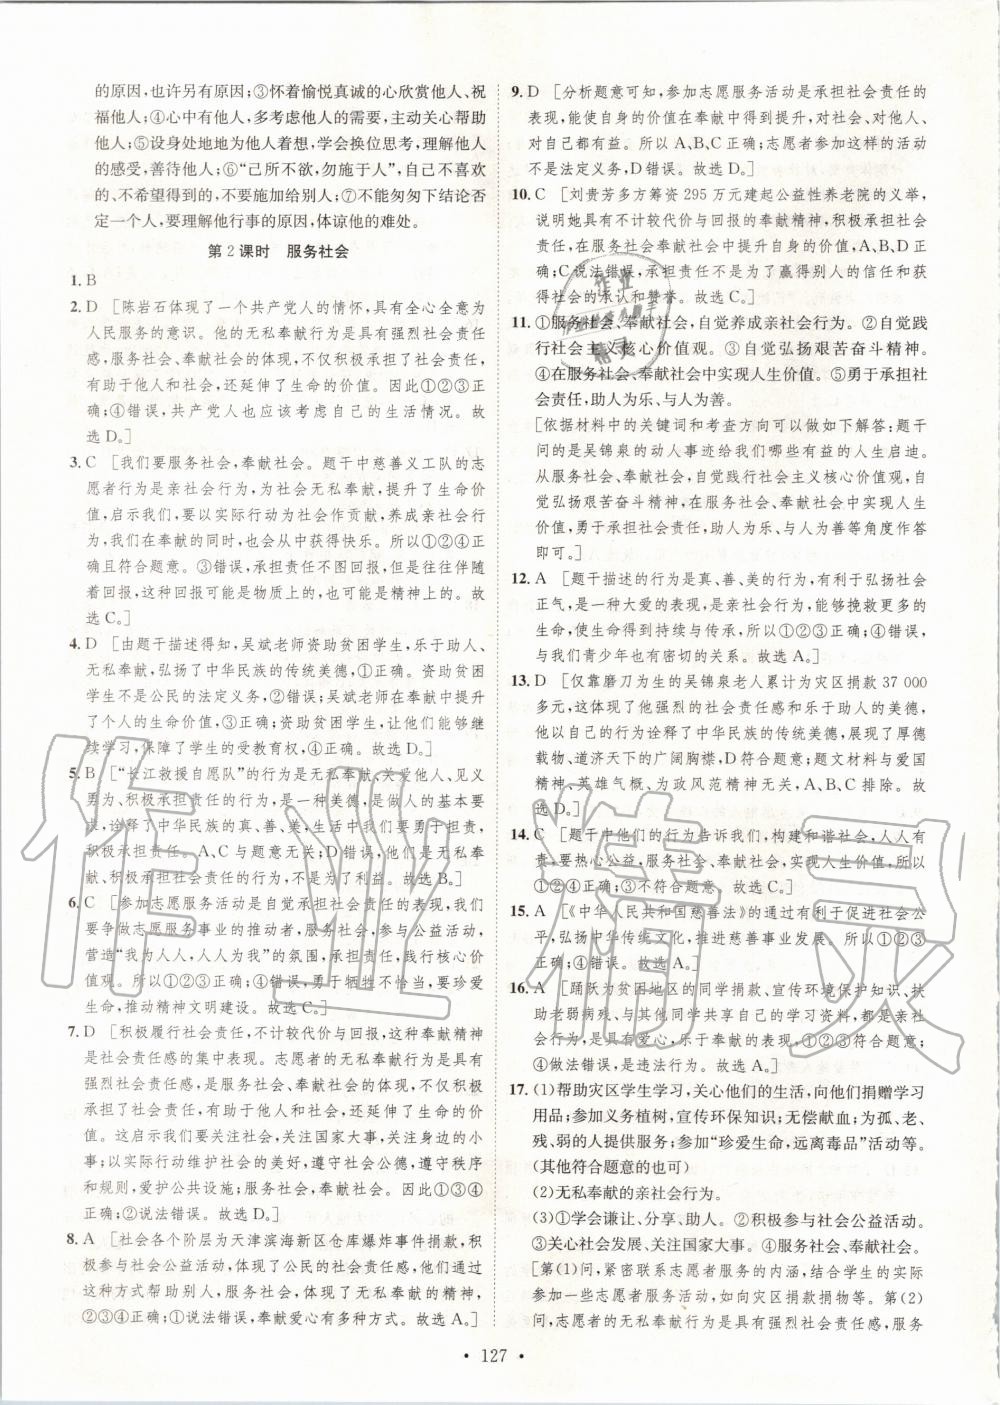 的原因,也许另有原因;③怀着愉悦真诚的心欣赏他人、祝
福他人;④心中有他人,多考虑他人的需要,主动关心帮助
他人;⑤设身处地地为他人着想,学会换位思考,理解他人
的感受,善待他人;⑥“己所不欲,勿施于人”,自己不喜欢
的、不希望得到的,不要施加给别人;⑦不能匆匆下结论否
定一个人,要理解他行事的原因,体谅他的难处。
第2课时 服务社会
1. B
2. D [陈岩石体现了一个共产党人的情怀,具有全心全意为
人民服务的意识。他的无私奉献行为是具有强烈社会责任
感,服务社会、奉献社会的体现,不仅积极承担了社会责任,
有助于他人和社会,还延伸了生命的价值。因此①②③正
确;④错误,共产党人也应该考虑自己的生活情况。故
选 D。]
3. C [我们要服务社会,奉献社会。题干中慈善义工队的志
愿者行为是亲社会行为,为社会无私奉献,提升了生命价
值,启示我们,要以实际行动为社会作贡献,养成亲社会行
为,在奉献的同时,也会从中获得快乐。所以①②④正
确且符合题意。③错误,奉献不图回报,但是往往伴随
着回报,这种回报可能是物质上的,也可能是精神上的。
故选 C。]
4. D [由题干描述得知,吴斌老师资助贫困学生,乐于助人、
无私奉献,弘扬了中华民族的传统美德,①正确。资助贫困
学生不是公民的法定义务,②错误;吴斌老师在奉献中提升
了个人的生命价值,③正确;资助贫困学生,让他们能够继
续学习,保障了学生的受教育权,④正确。故选 D。]
5. B [“长江救援自愿队”的行为是无私奉献、关爱他人、见义
勇为、积极承担责任的行为,是一种美德,是做人的基本要
求,诠释了中华民族的真、善、美,生活中我们要勇于担责,
积极承担责任。A、C与题意无关;D错误,他们是无私奉
献、积极承担社会责任的行为,不是为了利益。故选 B。]
6. C [参加志愿服务活动是自觉承担社会责任的表现,我们
要争做志愿服务事业的推动者,服务社会,参与公益活动,
营造“我为人人,人人为我”的氛围,奉献社会,践行核心价
值观。所以①②③正确。④错误,勇于牺牲不恰当,要珍爱
生命,推动精神文明建设。故选 C。]
7. D [积极履行社会责任,不计较代价与回报,这种奉献精神
是社会责任感的集中表现。志愿者的无私奉献行为是具有
强烈社会责任感,是服务社会、奉献社会的体现,不仅积极
承担了社会责任,有助于他人和社会,还延伸了生命的价
值。这启示着我们要关注社会,关注国家大事,关注身边的小
事;以实际行动维护社会的美好,遵守社会公德,遵守秩序
和规则,爱护公共设施;服务社会,奉献社会。因此①③④
正确;②说法错误。故选 D。]
8. A [社会各个阶层为天津滨海新区仓库爆炸事件捐款,积
极参与社会公益活动,体现了公民的社会责任感;他们通过
这种方式帮助别人,服务社会,体现了无私奉献的精神,
②③④正确;①说法错误,奉献爱心有多种方式。故选 A。]
9. D [分析题意可知,参加志愿服务活动是承担社会责任的
表现,能使自身的价值在奉献中得到提升,对社会、对他人、
对自己都是有意义的。但是,志愿者参加这样的活动
不是法定义务,D错误。所以A、B、C正确。故选 D。]
10. C [刘贵芳多方筹资 295 万元建起公益性养老院的义举,
说明她具有不计较代价与回报的奉献精神,积极承担社会
责任,在服务和奉献社会中提升自身的价值,A、B、D正
确;C说法错误,承担责任不是为了赢得别人的信任和获
得社会的承认和赞誉。故选 C。]
11. ①服务社会、奉献社会,自觉养成亲社会行为。②自觉践
行社会主义核心价值观。③自觉弘扬艰苦奋斗精神。
④在服务社会、奉献社会中实现人生价值。⑤勇于承担社
会责任,助人为乐、与人为善。
[依据材料中的关键词和考查方向可以如下解答:题干
问的是吴锦泉的动人事迹给我们哪些有益的人生启迪。
从服务社会、奉献社会,自觉践行社会主义核心价值观,自
觉弘扬艰苦奋斗精神,在服务社会、奉献社会中实现人生
价值,勇于承担社会责任,助人为乐、与人为善等角度作答
即可。]
12. A [题干描述的行为是真、善、美的行为,有利于弘扬社会
正气,是一种大爱的表现,是亲社会行为,能够挽救更多的
生命,使生命得到持续与传承,所以①②③正确;④错误,
与我们青少年也有密切的关系。故选 A。]
13. D [仅靠磨刀为生的吴锦泉老人累计为灾区捐款 37 000
多元,体现了他强烈的社会责任感和乐于助人的美德,
他以自己的行为诠释了中华传统美德,展现了厚德
载物、道济天下的广阔胸襟,D符合题意;题文材料与爱国
精神、英雄气概、为政风范精神无关,A、B、C 排除。故
选 D。]
14. C [题干中他们的行为告诉我们,构建和谐社会,人人有
责;要热心公益,服务社会,实现人生价值,所以
①②④正确;③不符合题意。故选 C。]
15. A [《中华人民共和国慈善法》的通过有利于促进社会公
平,弘扬中华传统文化,推进慈善事业发展。所以①②③
正确,④错误。故选 A。]
16. A [踊跃为贫困地区的同学捐款、宣传环境保护知识、扶
助老弱病残、与其他同学共享自己的学习资料,都是亲社
会行为,是具有爱心,乐于奉献的表现,①②③符合题意;
④做法错误,是违法行为。故选 A。]
17. (1)帮助灾区学生学习,关心他们的生活,向他们捐赠学习
用品;参加义务植树,宣传环保知识;无偿献血;为孤、老、
残、弱的人提供服务;参加“珍爱生命,远离毒品”活动等。
(其他符合题意的也可)
(2)无私奉献的亲社会行为。
(3)①学会谦让、分享、助人。②积极参与社会公益活动。
③关心社会发展、关注国家大事。④服务社会、奉献社会。
[第(1)问,紧密联系志愿者服务的内涵,结合学生的实际
参加一些志愿者服务活动,如向灾区捐款捐物等。第(2)
问,志愿者的无私奉献行为是具有强烈社会责任感,服务
• 127 •
作业精灵